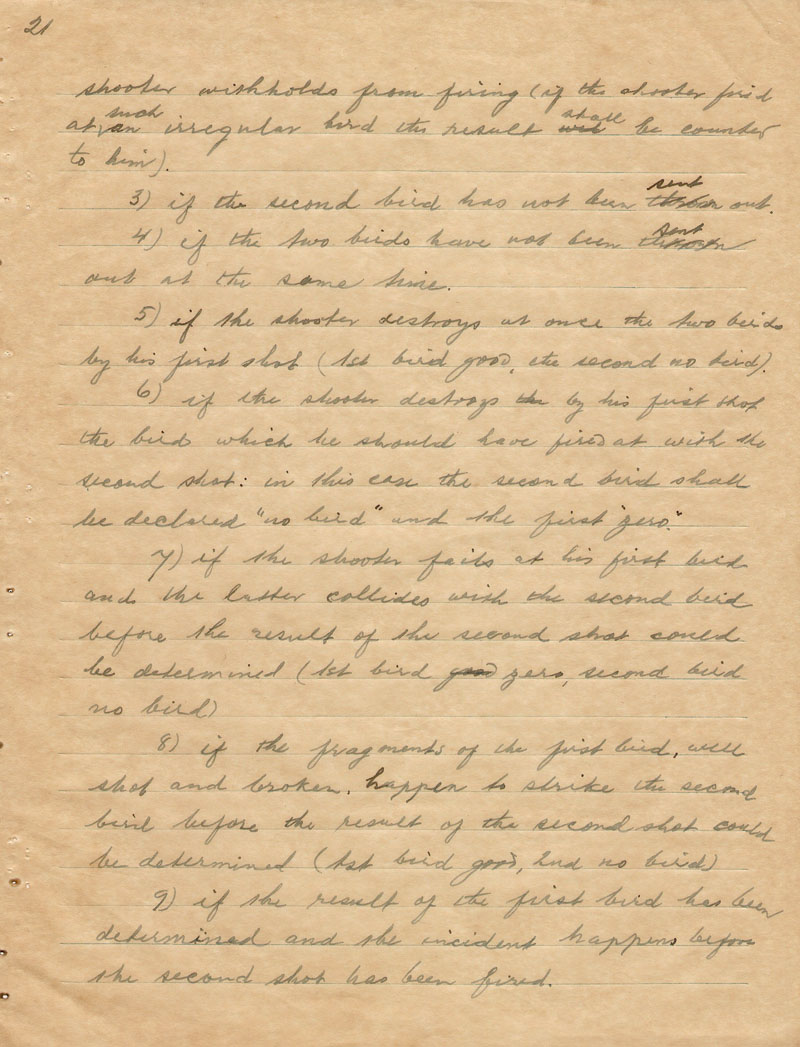 21
shooter withholds from firing (if the shooter fired
such shall
at, an irregular bird the result will be counter
to him).
sent
3) if the second bird has not been thrown out.
sent
4) if the two birds have not been thrown
out at the same time.
5) if the shooter destroys at once the two birds
by his first shot (1st bird good, the second no bird).
6) if the shooter destroys the by his first shot
the bird which he should have fired at with the
second shot: in this case the second bird shall
be declared "no bird" and the first "zero."
7) if the shooter fails at his first bird
and the latter collides with the second bird
before the result of the second shot could
be determined (1st bird good zero, second bird
no bird)
8) if the fragments of the first bird, well
shot and broken, happen to strike the second
bird before the result of the second shot could
be determined (1st bird good, 2nd no bird)
9) if the result of the first bird has been
determined and the incident happens before
the second shot has been fired.